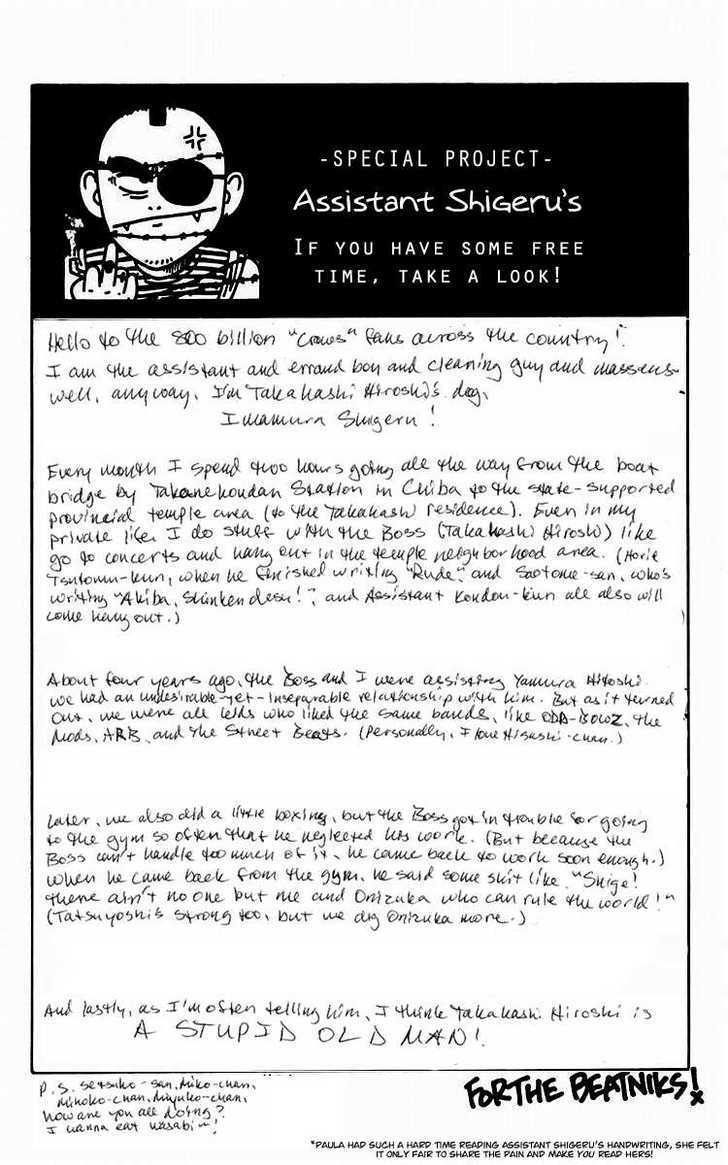 -SPECIAL PROJECT-
Assistant Shigeru's
IF YOU HAVE SOME FREE
TIME, TAKE A LOOK!
Hello to the 800 billion "Crows" fans across the country!
I am the assistant and errand boy and cleaning guy and masseus-
well, anyway, I'm Takahashi Hiroshi's dog,
Imamura Shigeru!
Every month I spend two hours going all the way from the boat
bridge by Takanekoudan Station in Chiba to the state-supported
provincial temple area (to the Takahashi residence). Even in my
private life, I do stuff with the Boss (Takahashi Hiroshi) like
go to concerts and hang out in the temple neighborhood area. (Horie
Tsutomu-kun, when he finished writing "Rude", and Saotome-san, who's
writing "Akiba, Shinken desu!", and Assistant Kondou-kun all also will
come hang out.)
About four years ago, the Boss and I were assisting Yamura Hitoshi.
We had an undesirable-yet-inseparable relationship with him. But as it turned
out, we were all kids who liked the same bands, like ODA-BOWZ, the
Mods, ARB, and the Street Beats. (Personally, I love Higashi-chan.)
Later, we also did a little boxing, but the Boss got in trouble for going
to the gym so often that he neglected his work. (But because the
Boss can't handle too much of it, he came back to work soon enough.)
When he came back from the gym, he said some shit like, "Shige!
there ain't no one but me and Onizuka who can rule the world!"
(Tatsuyoshi's strong too, but we dig Onizuka more.)
And lastly, as I'm often telling him, I think Takahashi Hiroshi is
A STUPID OLD MAN!
P.S. Setsuko-san, Miko-chan,
Mihoko-chan, Miyuko-chan,
how are you all doing?
I wanna eat wasabi~!
FOR THE BEATNIKS!
*PAULA HAD SUCH A HARD TIME READING ASSISTANT SHIGERU'S HANDWRITING, SHE FELT
IT ONLY FAIR TO SHARE THE PAIN AND MAKE YOU READ HERS!